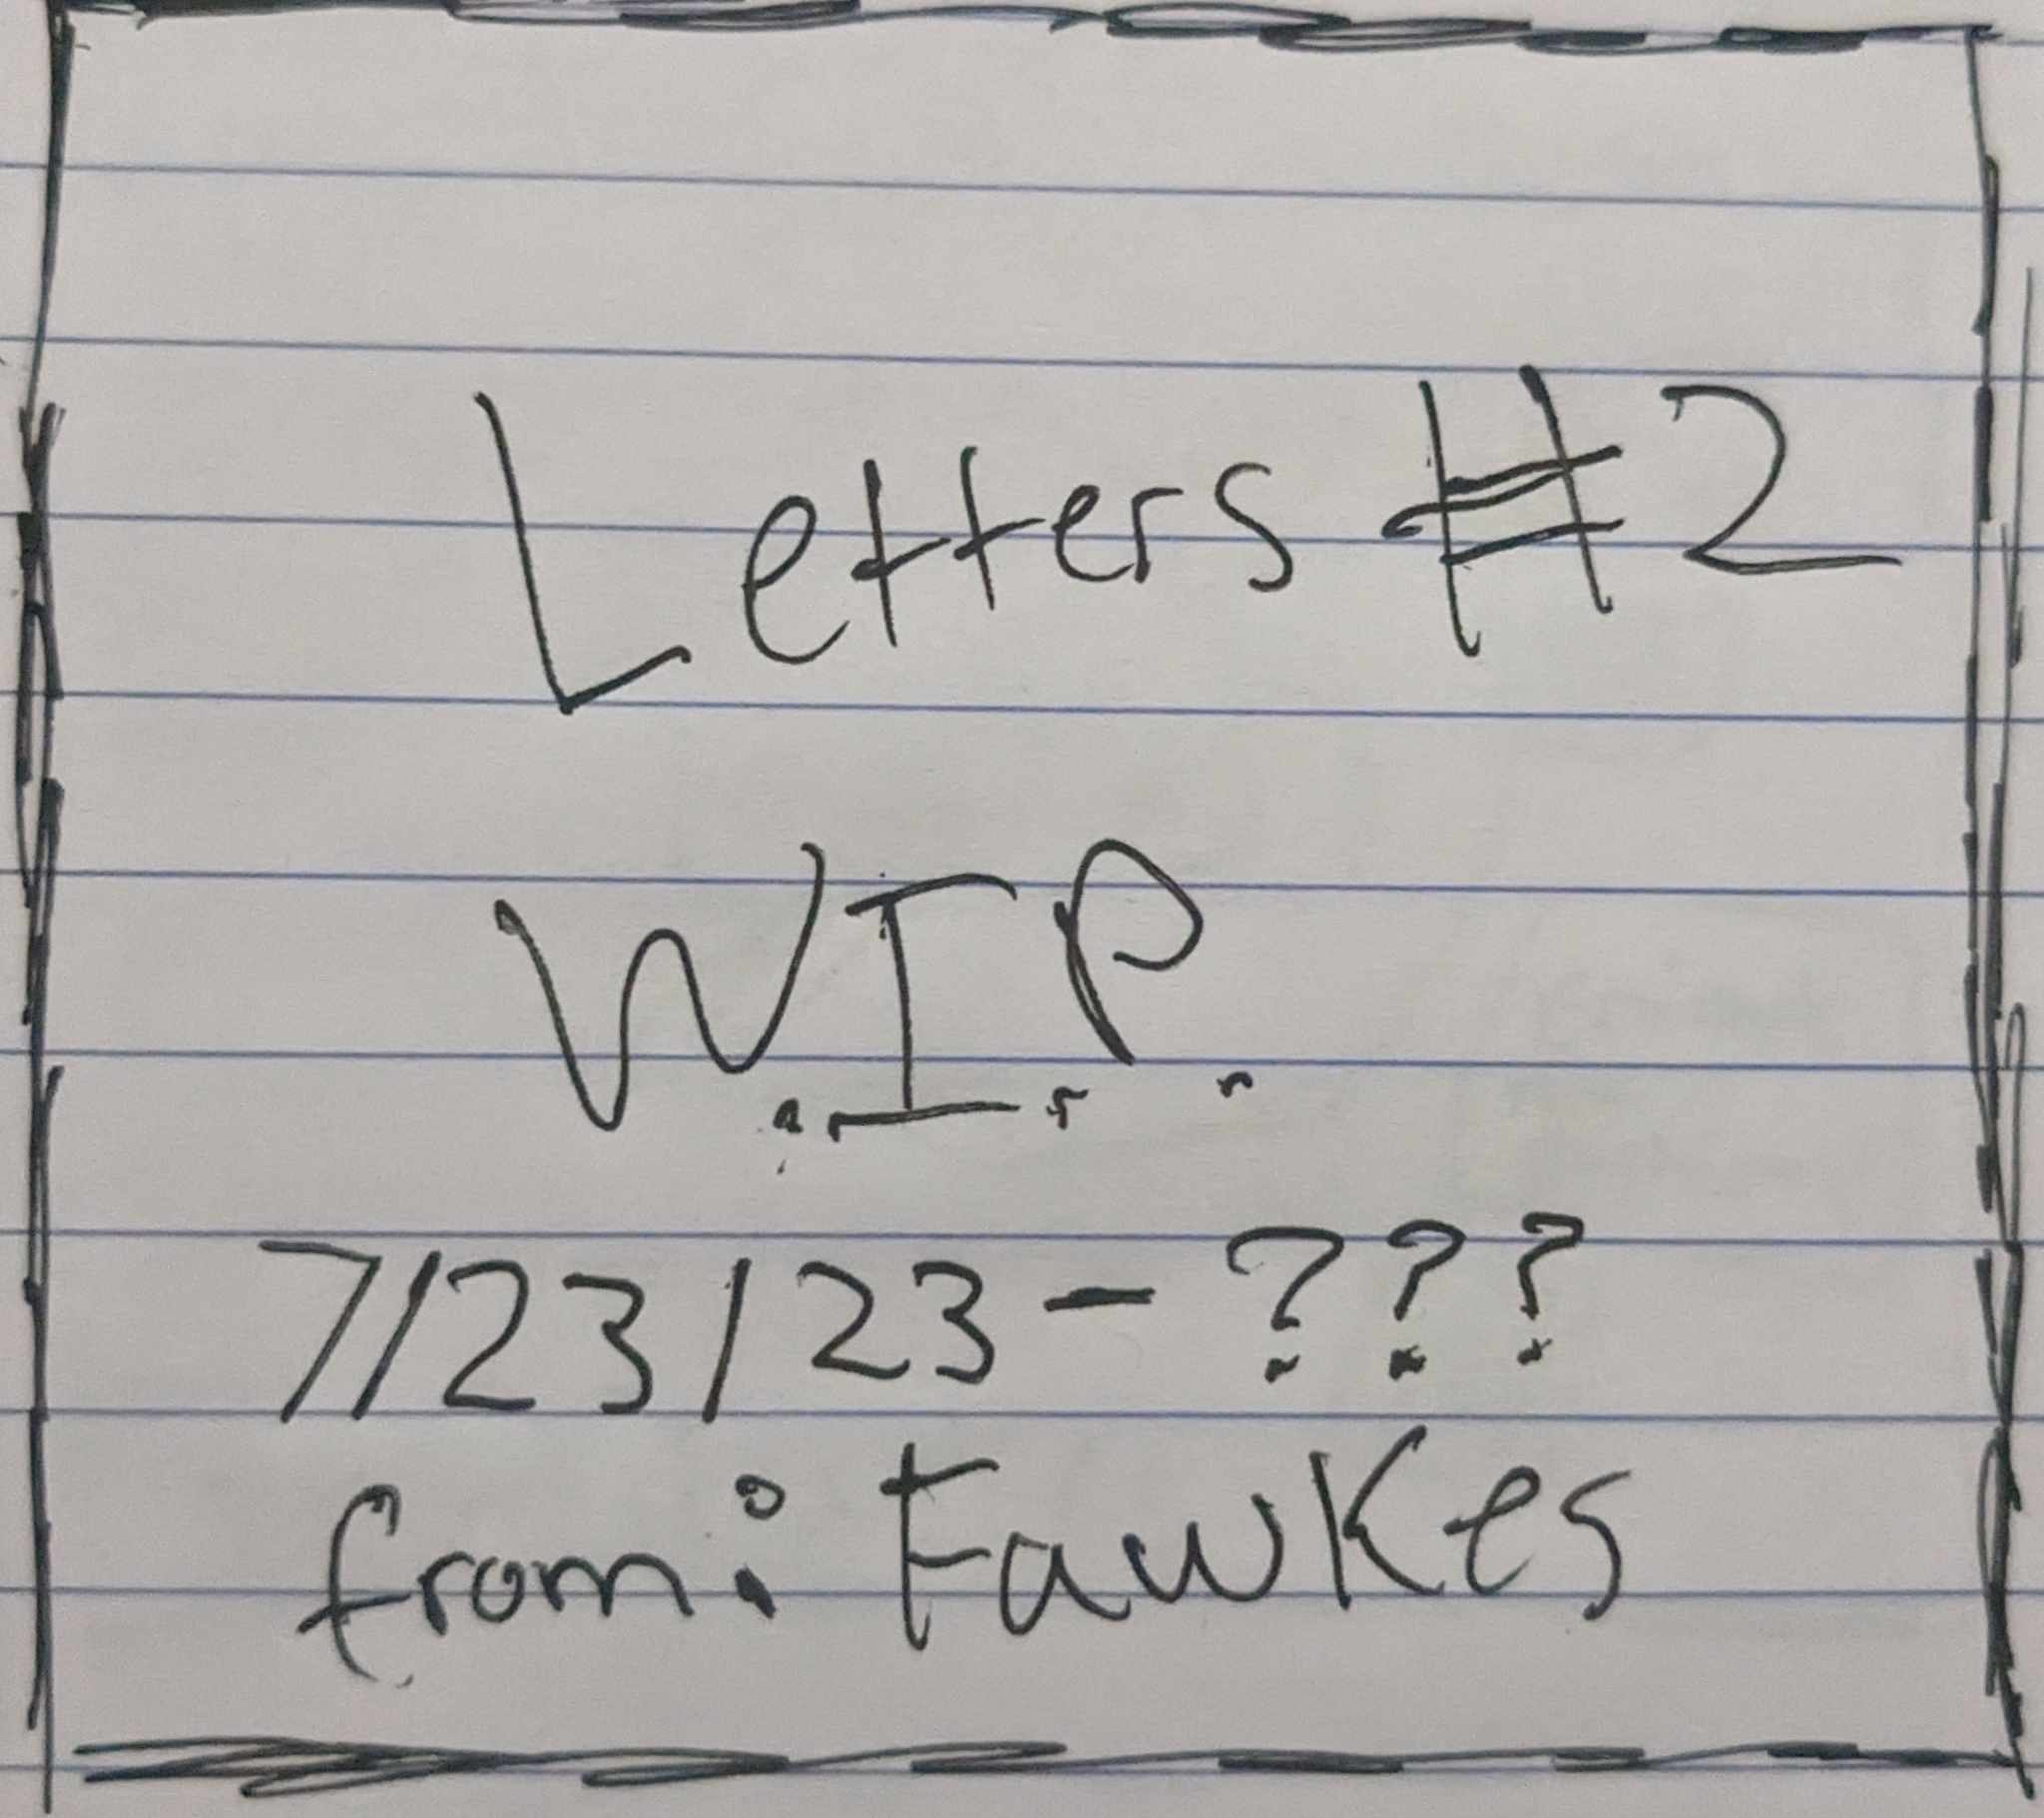 Letters #2
W.I.P.
7/23/23 - ???
from: Fawkes